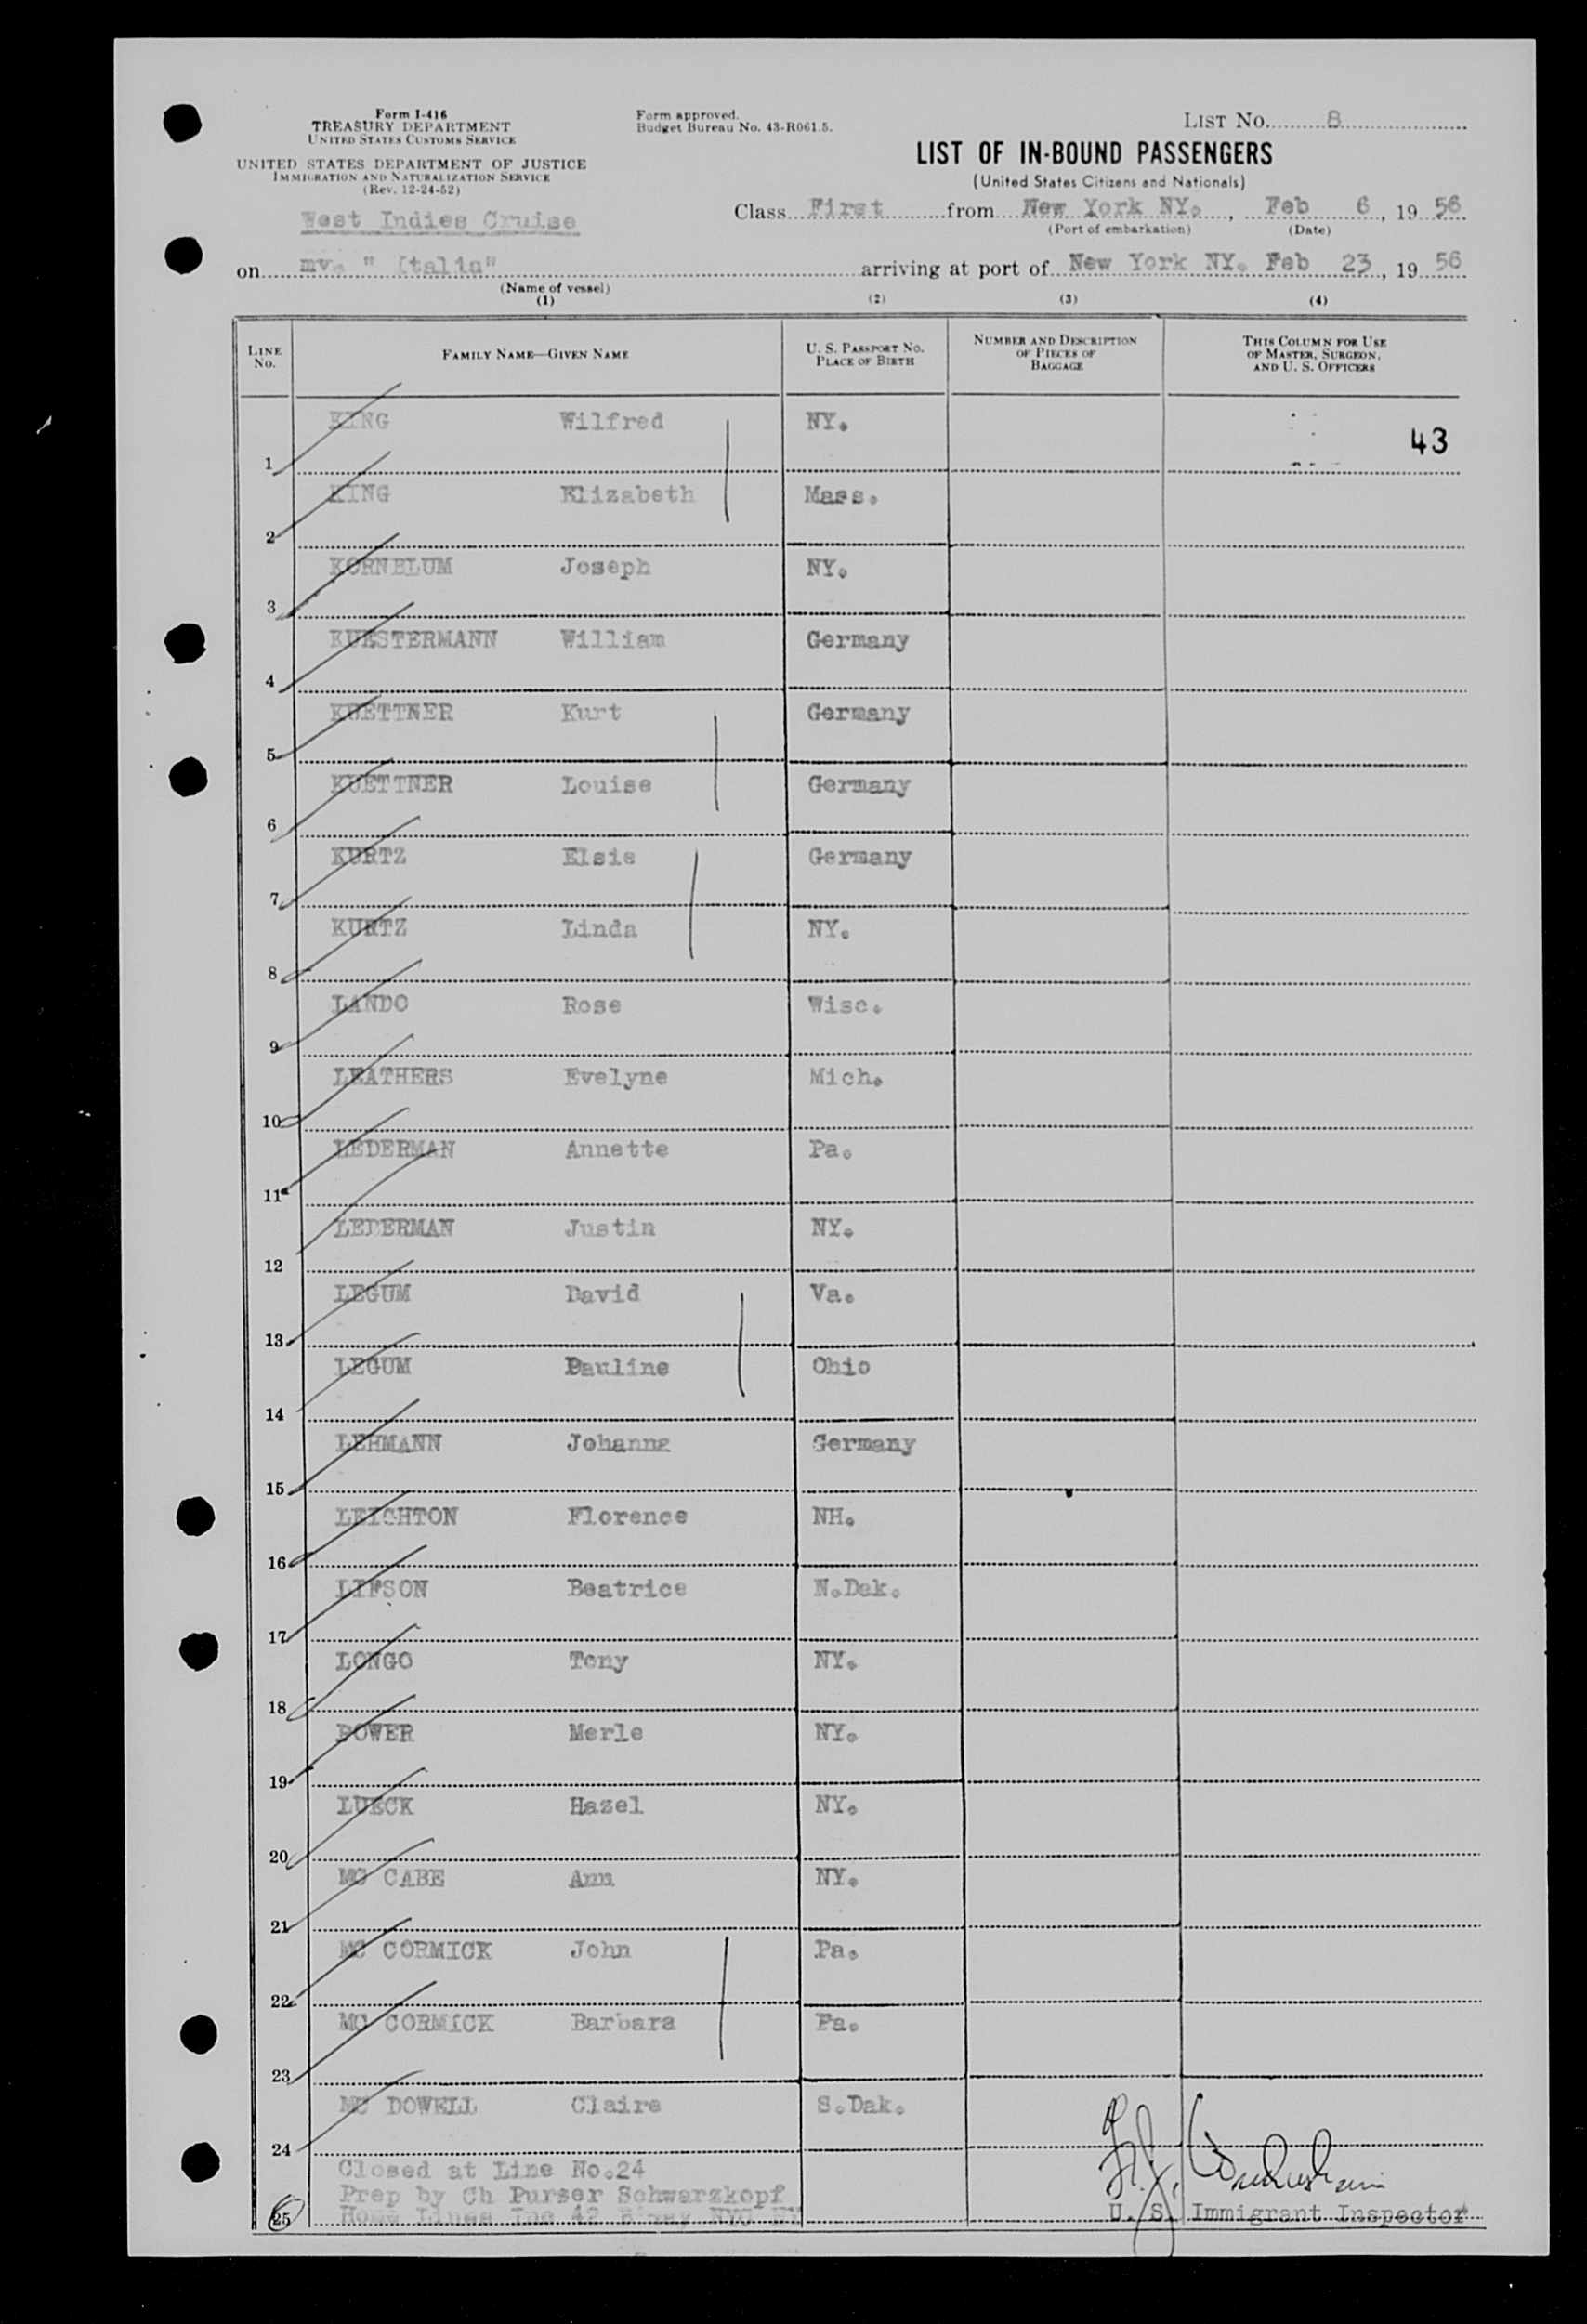 Form I-416
TREASURY DEPARTMENT
UNITED STATES CUSTOMS SERVICE
UNITED STATES DEPARTMENT OF JUSTICE
IMMIGRATION AND NATURALIZATION SERVICE
(Rev. 12-24-52)
Form approved.
Budget Bureau No. 43-R061.5.
LIST No. 8
LIST OF IN-BOUND PASSENGERS
(United States Citizens and Nationals)
West Indies Cruise
Class First from New York NY., Feb 6, 19 56
(Port of embarkation) (Date)
on mv. " Italia" arriving at port of New York NY. Feb 23, 19 56
(Name of vessel)
(1) (2) (3) (4)
LINE No. FAMILY NAME—GIVEN NAME U. S. PASSPORT No. PLACE OF BIRTH NUMBER AND DESCRIPTION OF PIECES OF BAGGAGE THIS COLUMN FOR USE OF MASTER, SURGEON, AND U. S. OFFICERS
1 KING Wilfred NY. 43
2 KING Elizabeth Mass.
3 KORNBLUM Joseph NY.
4 KUESTERMANN William Germany
5 KUETTNER Kurt Germany
6 KUETTNER Louise Germany
7 KURTZ Elsie Germany
8 KURTZ Linda NY.
9 LANDO Rose Wisc.
10 LEATHERS Evelyne Mich.
11 LEDERMAN Annette Pa.
12 LEDERMAN Justin NY.
13 LEGUM David Va.
14 LEGUM Pauline Ohio
15 LEHMANN Johanna Germany
16 LEIGHTON Florence NH.
17 LIFSON Beatrice N.Dak.
18 LONGO Tony NY.
19 BOWER Merle NY.
20 LUECK Hazel NY.
21 MC CABE Ann NY.
22 MC CORMICK John Pa.
23 MC CORMICK Barbara Pa.
24 MC DOWELL Claire S.Dak.
Closed at Line No.24
Prep by Ch Purser Schwarzkopf
25 Home Lines Inc 42 NYC
U. S. Immigrant Inspector